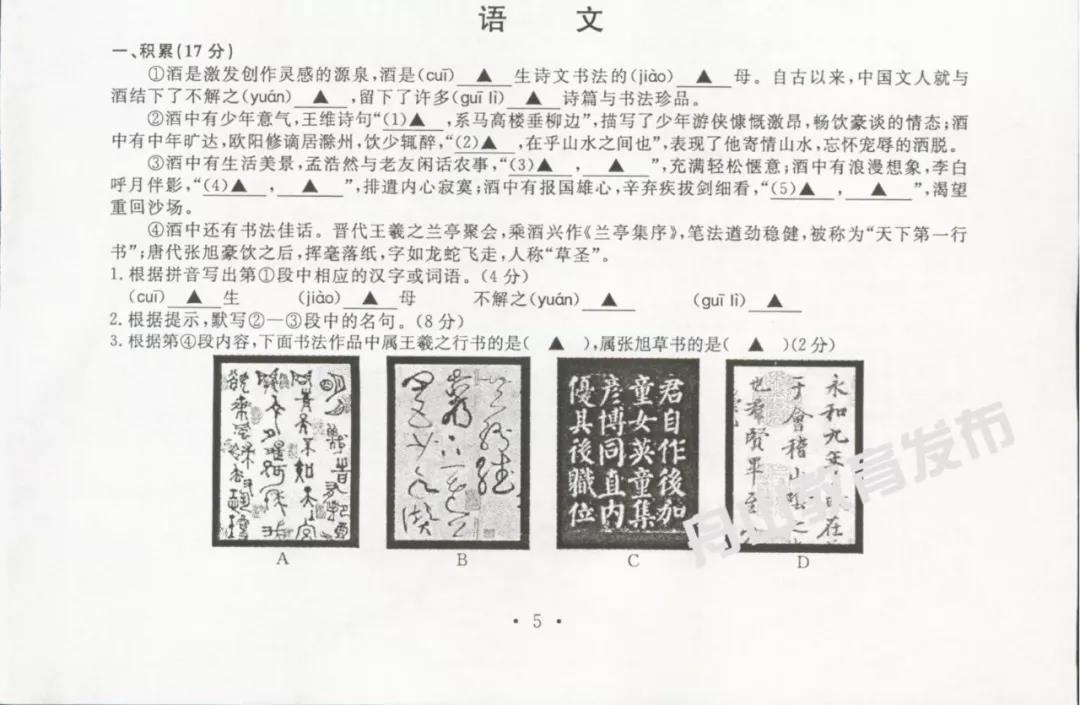 语 文
一、积累(17分)
①酒是激发创作灵感的源泉,酒是(cuī) ▲ 生诗文书法的(jiào) ▲ 母。自古以来,中国文人就与
酒结下了不解之(yuán) ▲ ,留下了许多(guī lì) ▲ 诗篇与书法珍品。
②酒中有少年意气,王维诗句“(1)▲ ,系马高楼垂柳边”,描写了少年游侠慷慨激昂,畅饮豪谈的情态;酒
中有中年旷达,欧阳修谪居滁州,饮少辄醉,“(2)▲ ,在乎山水之间也”,表现了他寄情山水,忘怀宠辱的洒脱。
③酒中有生活美景,孟浩然与老友闲话农事,“(3)▲ , ▲ ”,充满轻松惬意;酒中有浪漫想象,李白
呼月伴影,“(4)▲ , ▲ ”,排遣内心寂寞;酒中有报国雄心,辛弃疾拔剑细看,“(5)▲ , ▲ ”,渴望
重回沙场。
④酒中还有书法佳话。晋代王羲之兰亭聚会,乘酒兴作《兰亭集序》,笔法遒劲稳健,被称为“天下第一行
书”;唐代张旭豪饮之后,挥毫落纸,字如龙蛇飞走,人称“草圣”。
1.根据拼音写出第①段中相应的汉字或词语。(4分)
(cuī) ▲ 生 (jiào) ▲ 母 不解之(yuán) ▲ (guī lì) ▲
2.根据提示,默写②—③段中的名句。(8分)
3.根据第④段内容,下面书法作品中属王羲之行书的是( ▲ ),属张旭草书的是( ▲ )(2分)
君自作後加
童女英童集
彦博同直内
優其後職位
永和九年
于會稽山
也羣賢畢至
A B C D
舟山教育发布
• 5 •